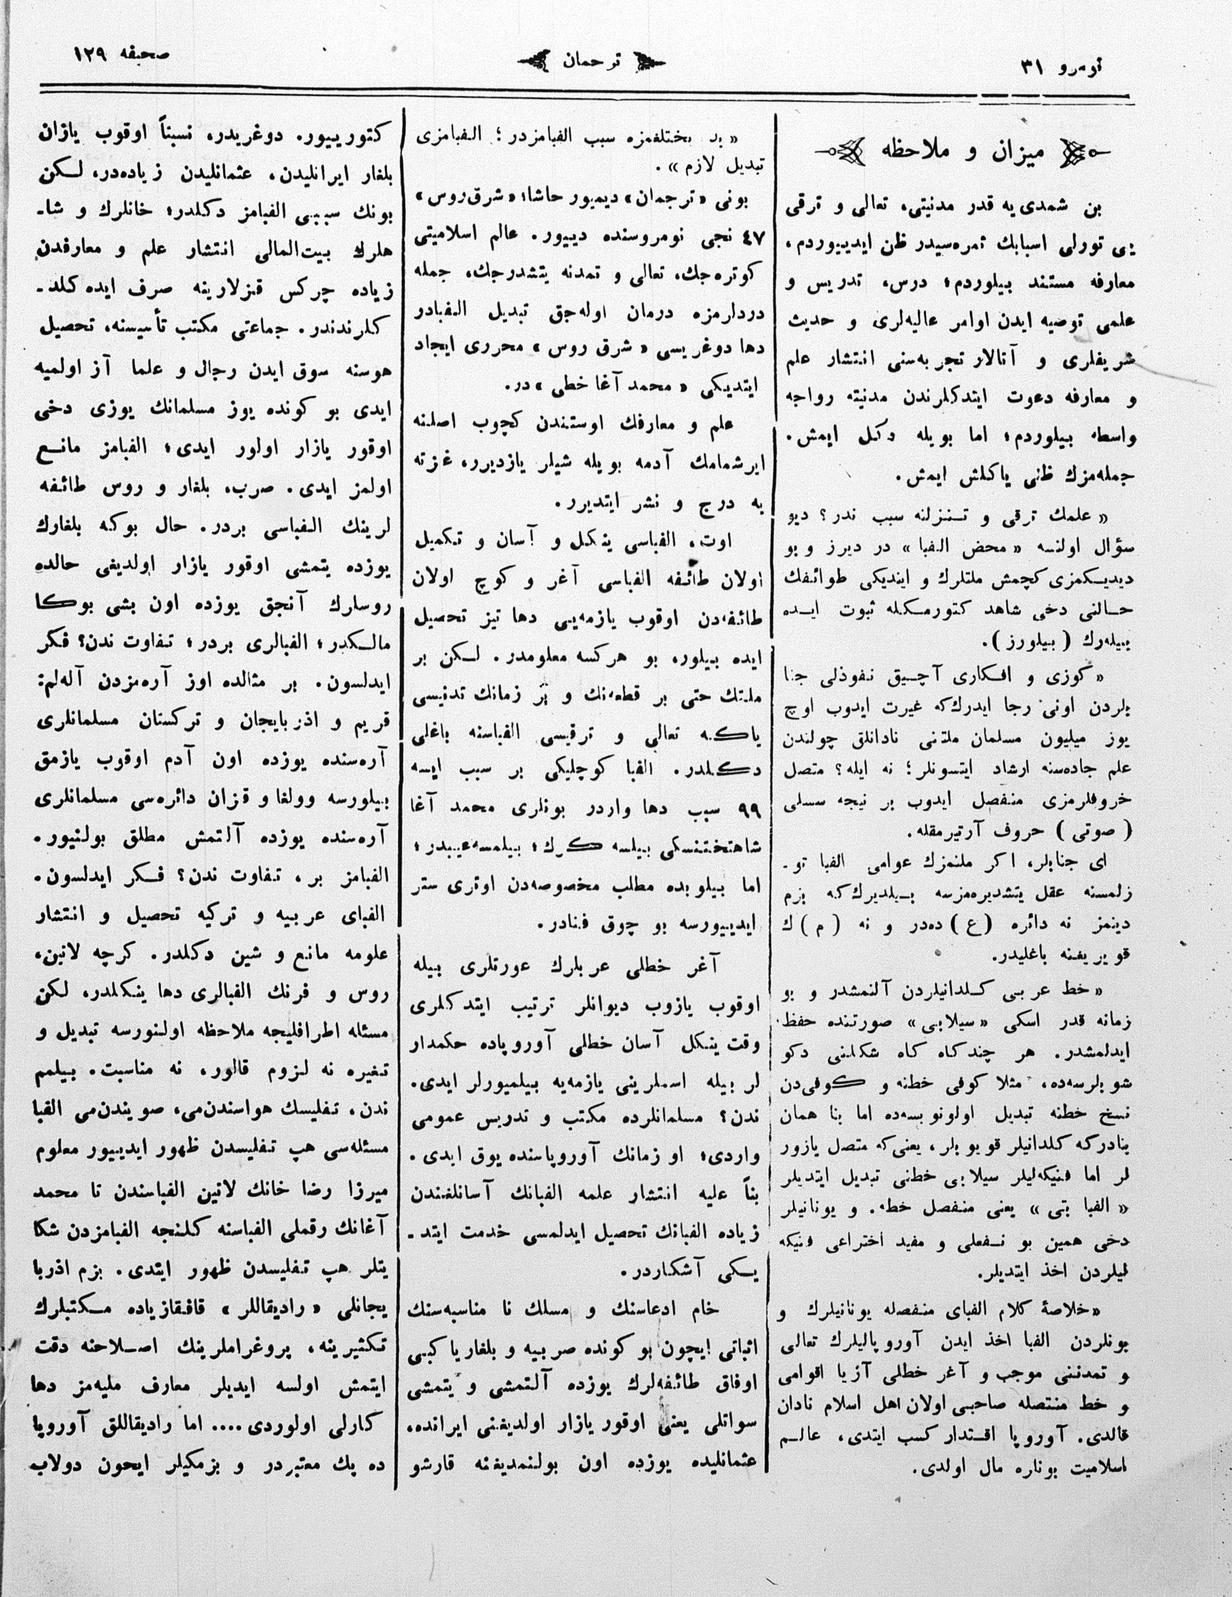 نومرو ٣١
ترجمان
صحیفه ١٢٩
میزان و ملاحظه
بن شمدی‌یه قدر مدنیتی، تعالی و ترقی
یی تورلی اسبابك ثمره‌سیدر ظن ایدییوردم،
معارفه مستند بیلوردم؛ درس، تدریس و
علمی توصیه ایدن اوامر عالیه‌لری و حدیث
شریفلری و آنالار تجربه‌سنی انتشار علم
و معارفه دعوت ایتدكلرندن مدنیته رواجه
واسطه بیلوردم؛ اما بویله دكل ایمش.
جمله‌مزك ظنی یاكلش ایمش.
« علمك ترقی و تنزلنه سبب ندر؟ دیو
سؤال اولنسه « محض الفبا » در دیرز و بو
دیدیكمزی كچمش ملتلرك و ایندیكی طوائفك
حالنی دخی شاهد كتورمكله ثبوت ایده
بیله‌رك ( بیلورز ).
« كوزی و افكاری آچیق نفوذلی جنا
بلردن اونی رجا ایدرك كه غیرت ایدوب اوچ
یوز میلیون مسلمان ملتنی نادانلق چولندن
علم جاده‌سنه ارشاد ایتسونلر؛ نه ایله؟ متصل
حروفلرمزی منفصل ایدوب بر نیجه سسلی
( صوتی ) حروف آرتیرمقله.
ای جنابلر، اكر ملتمزك عوامی الفبا تو۔
زلمسنه عقل یتشدیره‌مزسه بیلدیرك كه بزم
دینمز نه دائره (ع) ده‌در و نه (م) ك
قویریغنه باغلیدر.
« خط عربی كلدانیلردن آلنمشدر و بو
زمانه قدر اسكی « سیلابی » صورتنده حفظ
ایدلمشدر. هر چند كاه كاه شكلنی دكو
شویرلرسه‌ده، مثلا كوفی خطنه و كوفی‌دن
نسخ خطنه تبدیل اولونویسه‌ده اما بنا همان
بنادركه كلدانیلر قویوبلر، یعنی كه متصل یازور
لر اما فنیكه‌لیلر سیلابی خطنی تبدیل ایتدیلر
« الفبا بتی » یعنی منفصل خطه. و یونانیلر
دخی همین بو نفعلی و مفید اختراعی فنیكه
لیلردن اخذ ایتدیلر.
« خلاصهٔ كلام الفبای منفصله یونانیلرك و
بونلردن الفبا اخذ ایدن آوروپالیلرك تعالی
و تمدننی موجب و آغر خطلی آزیا اقوامی
و خط متصله صاحبی اولان اهل اسلام نادان
قالدی. آوروپا اقتدار كسب ایتدی، عالم
اسلامیت بونلره مال اولدی.
« بد بختلغمزه سبب الفبامزدر؛ الفبامزی
تبدیل لازم ».
بونی « ترجمان » دیمیور حاشا؛ « شرق روس »
٤٧ نجی نومروسنده دییور. عالم اسلامیتی
كوتره‌جك، تعالی و تمدنه یتشدرجك، جمله
دردلرمزه درمان اوله‌جق تبدیل الفبادر
دها دوغریسی « شرق روس » محرری ایجاد
ایتدیكی « محمد آغا خطی » در.
علم و معارفك اوستندن كچوب اصلنه
ایرشمامك آدمه بویله شیلر یازدیرر، غزته
یه درج و نشر ایتدیرر.
اوت، الفباسی ینكل و آسان و تكمیل
اولان طائفه الفباسی آغر و كوچ اولان
طائفه‌دن اوقوب یازمه‌یی دها تیز تحصیل
ایده بیلور، بو هركسه معلومدر. لكن بر
ملتك حتی بر قطعه‌نك و بر زمانك تدنیسی
یاكه تعالی و ترقیسی الفباسنه باغلی
دكلدر. الفبا كوچلیكی بر سبب ایسه
٩٩ سبب دها واردر بونلری محمد آغا
شاهتختنسكی بیلسه كرك؛ بیلمسه عیبدر؛
اما بیلوبده مطلب مخصوصه‌دن اوتری ستر
ایدییورسه بو چوق فنادر.
آغر خطلی عربلرك عورتلری بیله
اوقوب یازوب دیوانلر ترتیب ایتدكلری
وقت ینكل آسان خطلی آوروپاده حكمدار
لر بیله اسملرینی یازمه‌یه بیلمیورلر ایدی.
ندن؟ مسلمانلرده مكتب و تدریس عمومی
واردی؛ او زمانك آوروپاسنده یوق ایدی.
بناً علیه انتشار علمه الفبانك آسانلغندن
زیاده الفبانك تحصیل ایدلمسی خدمت ایتد۔
یكی آشكاردر.
خام ادعاسنك و مسلك نا مناسبه‌سنك
اثباتی ایچون بو كونده صربیه و بلغاریا كبی
اوفاق طائفه‌لرك یوزده آلتمشی و یتمشی
سواتلی یعنی اوقور یازار اولدیغنی ایرانده،
عثمانلیده یوزده اون بولنمدیغنه قارشو
كتورییور. دوغریدر، نسبتاً اوقوب یازان
بلغار ایرانلیدن، عثمانلیدن زیاده‌در، لكن
بونك سببی الفبامز دكلدر؛ خانلرك و شا۔
هلرك بیت‌المالی انتشار علم و معارفدن
زیاده چركس قزلارینه صرف ایده كلد۔
كلرندندر. جماعتی مكتب تأسیسنه، تحصیل
هوسنه سوق ایدن رجال و علما آز اولمیه
ایدی بو كونده یوز مسلمانك یوزی دخی
اوقور یازار اولور ایدی؛ الفبامز مانع
اولمز ایدی. صرب، بلغار و روس طائفه
لرینك الفباسی بردر. حال بوكه بلغارك
یوزده یتمشی اوقور یازار اولدیغی حالده
روسلرك آنجق یوزده اون بشی بوكا
مالكدر؛ الفبالری بردر؛ تفاوت ندن؟ فكر
ایدلسون. بر مثالده اوز آره‌مزدن آله‌لم:
قریم و اذربایجان و تركستان مسلمانلری
آره‌سنده یوزده اون آدم اوقوب یازمق
بیلورسه وولغا و قزان دائره‌سی مسلمانلری
آره‌سنده یوزده آلتمش مطلق بولنیور.
الفبامز بر، تفاوت ندن؟ فكر ایدلسون.
الفبای عربیه و تركیه تحصیل و انتشار
علومه مانع و شین دكلدر. كرچه لاتین،
روس و فرنك الفبالری دها ینكلدر، لكن
مسئله اطرافلیجه ملاحظه اولنورسه تبدیل و
تغیره نه لزوم قالور، نه مناسبت. بیلمم
ندن، تفلیسك هواسندن‌می، صویندن‌می الفبا
مسئله‌سی هپ تفلیسدن ظهور ایدییور معلوم
میرزا رضا خانك لاتین الفباسندن تا محمد
آغانك رقملی الفباسنه كلنجه الفبامزدن شكا
یتلر هپ تفلیسدن ظهور ایتدی. بزم اذربا
یجانلی « رادیقاللر » قافقازیاده مكتبلرك
تكثیرینه، پروغراملرینك اصلاحنه دقت
ایتمش اولسه ایدیلر معارف ملیه‌مز دها
كارلی اولوردی.... اما رادیقاللق آوروپا
ده پك معتبردر و بزمكیلر ایچون دولاب